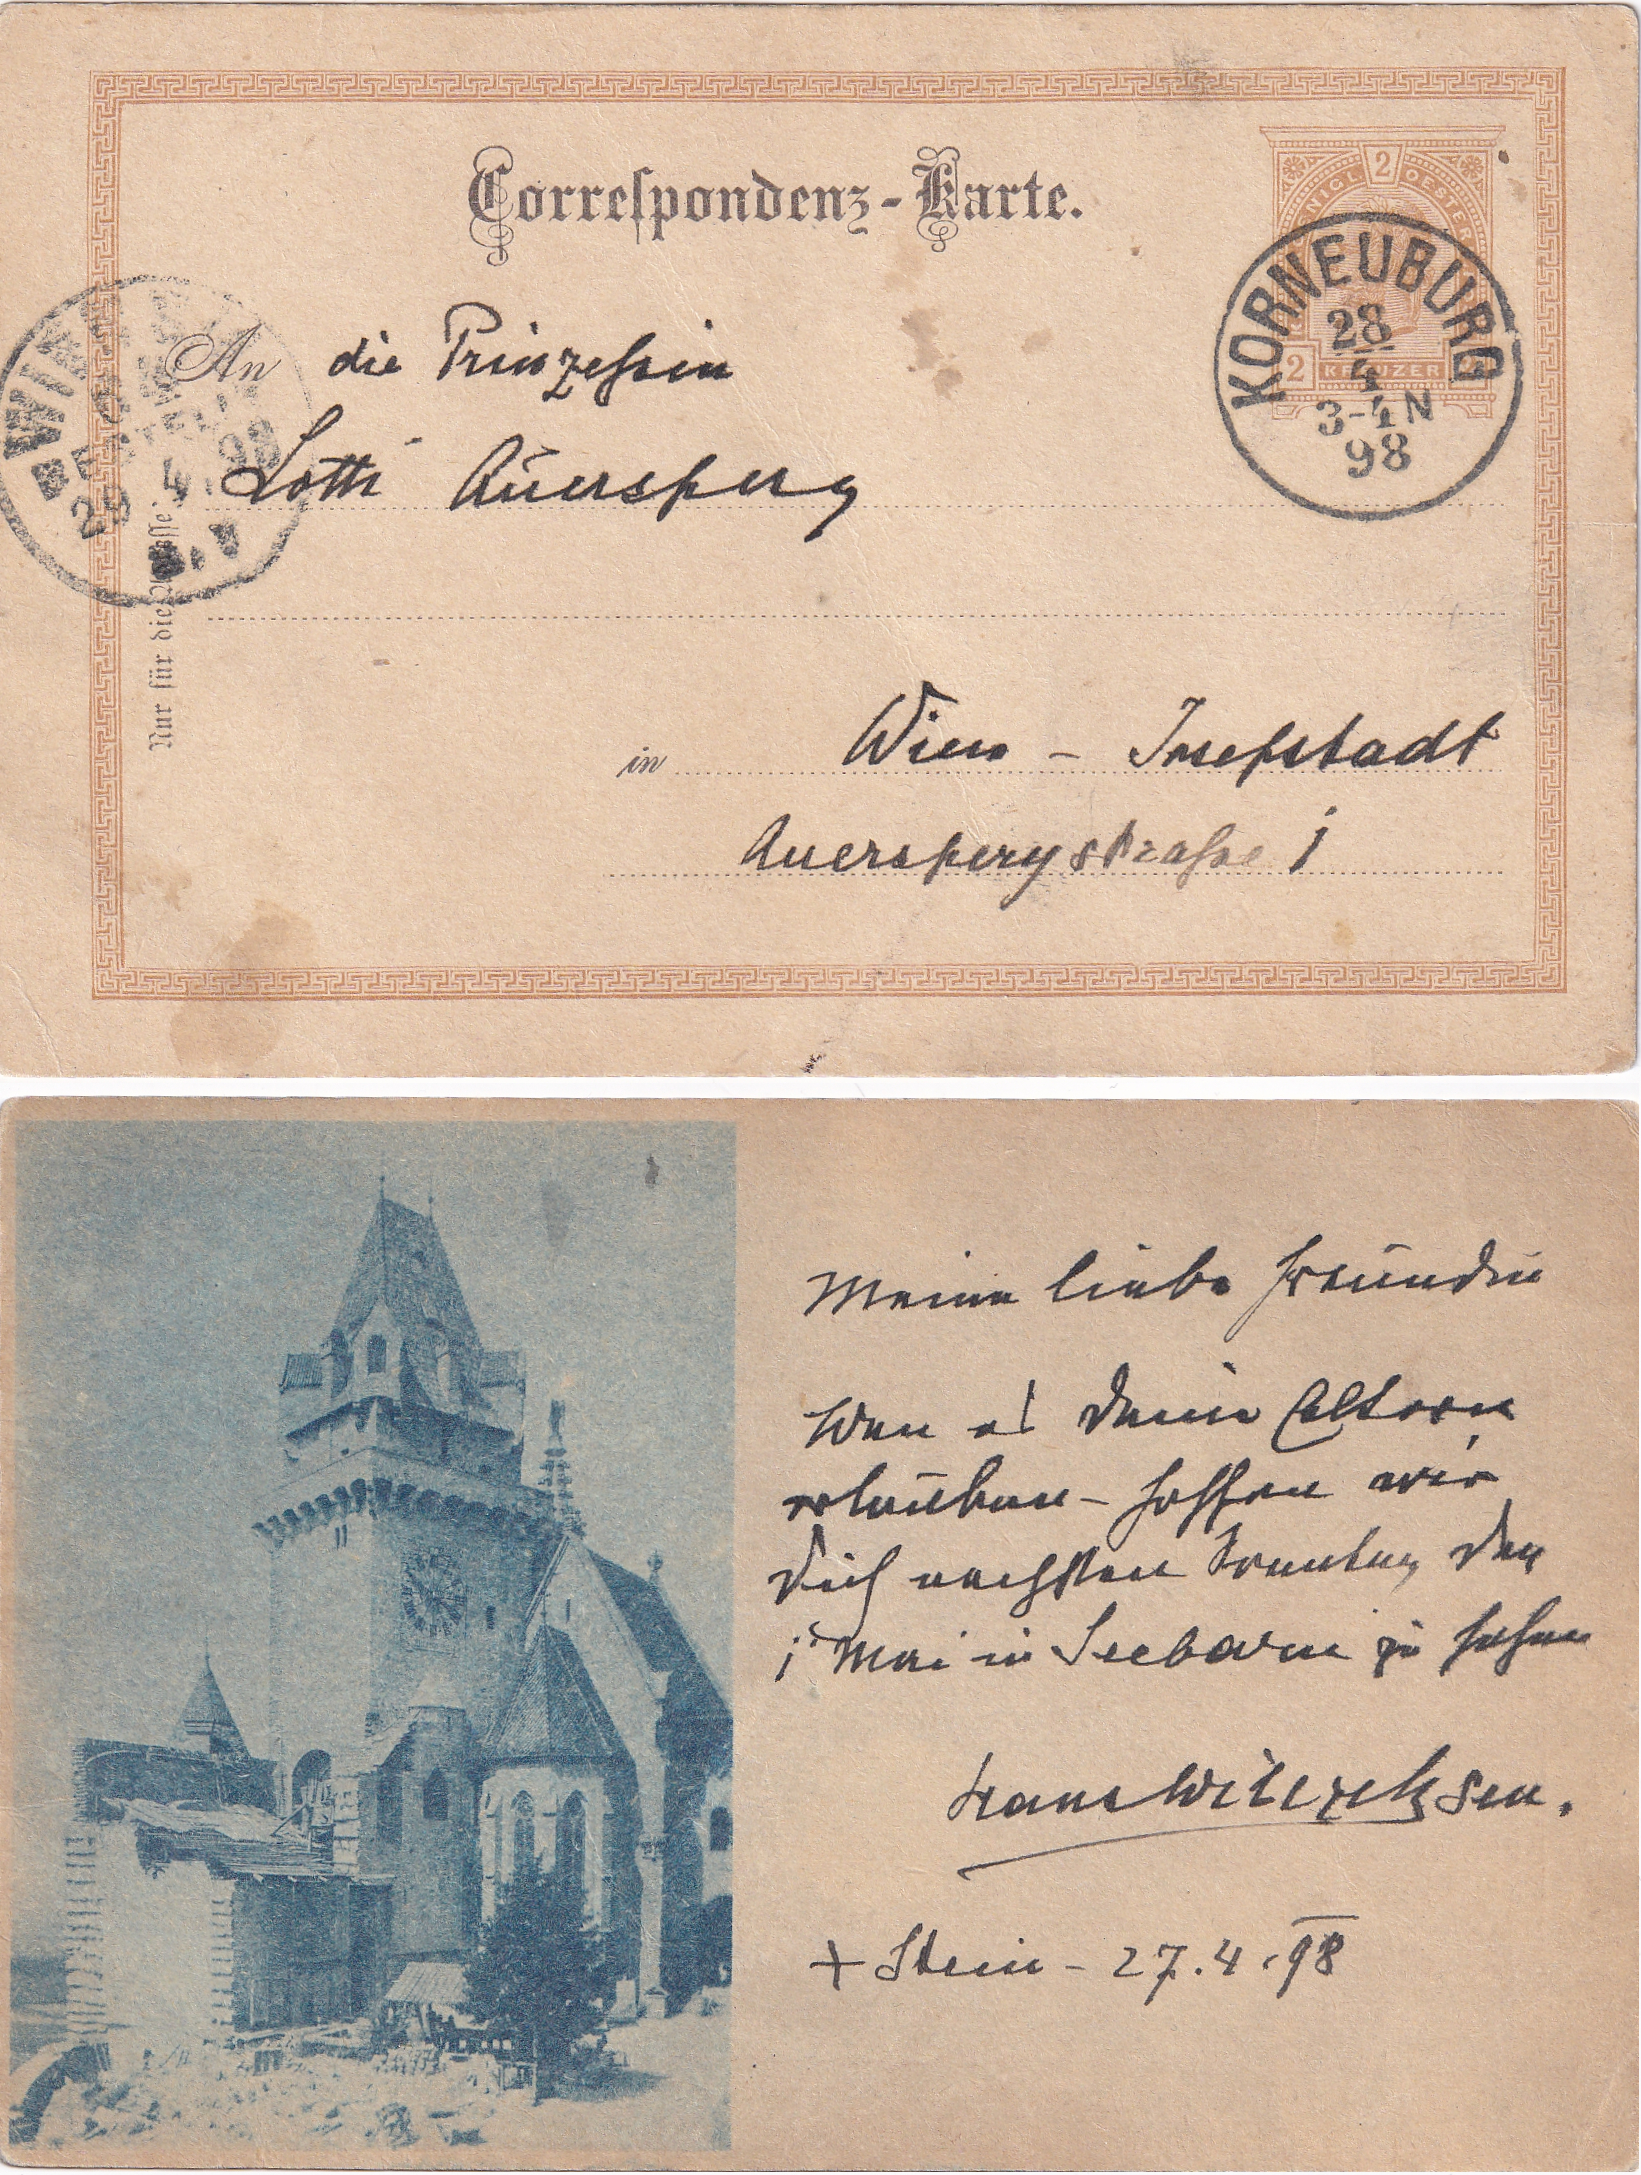 Correspondenz-Karte.
2
OESTER
KREUZER
2
KORNEUBURG
28
4
3-4N
98
WIEN
98
An die Prinzessin
Lotti Auersperg
Nur für die Adresse
in Wien - Josefstadt
Auerspergstraße 1
Meine liebe Freundin
Wen es deine Eltern
erlauben - hoffen wir
Dich nechsten Sonntag den
1t Mai in Seebarn zu sehen
Hans Wilczek sen.
+ Stein - 27.4.98